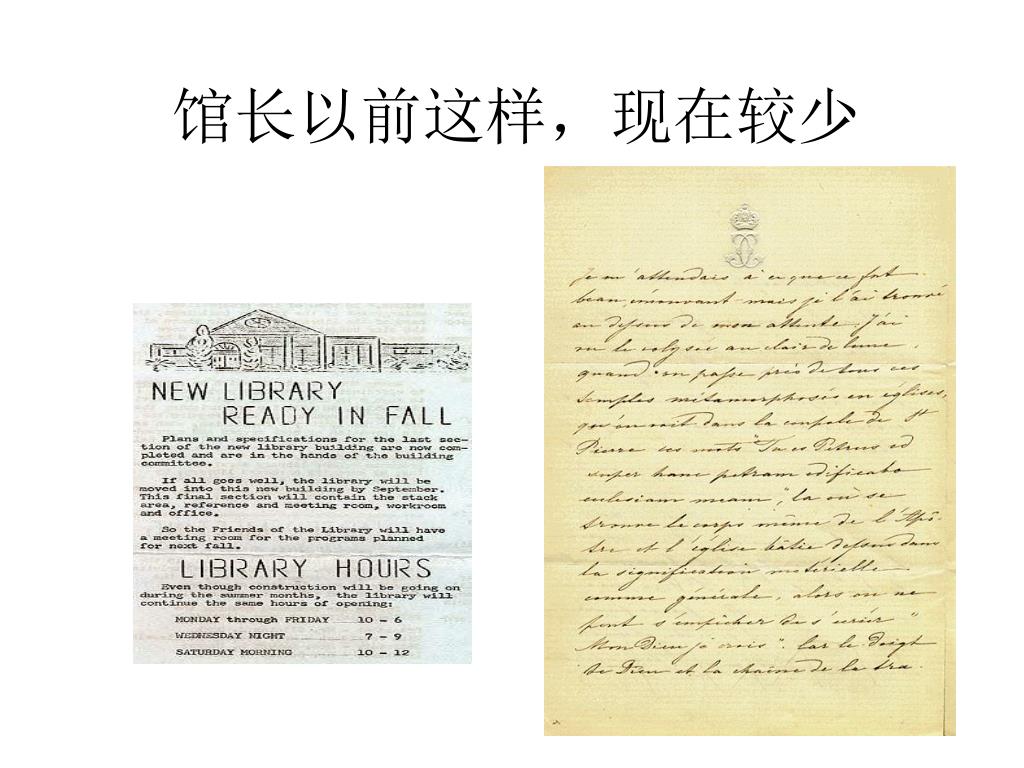 馆长以前这样，现在较少
NEW LIBRARY
READY IN FALL
Plans and specifications for the last sec-
tion of the new library building are now com-
pleted and are in the hands of the building
committee.
If all goes well, the library will be
moved into this new building by September.
This final section will contain the stack
area, reference and meeting room, workroom
and office.
So the Friends of the Library will have
a meeting room for the programs planned
for next fall.
LIBRARY HOURS
Even though construction will be going on
during the summer months, the library will
continue the same hours of opening:
MONDAY through FRIDAY 10 - 6
WEDNESDAY NIGHT 7 - 9
SATURDAY MORNING 10 - 12
Je m'attendais à ce que ce fut
beau, émouvant mais je l'ai trouvé
au dessus de mon attente. J'ai
vu le colysée au clair de lune,
quand on passe près de tous ces
temples métamorphosés en églises,
qu'on voit dans la coupole de St
Pierre ces mots "Tu es Petrus et
super hanc petram edificabo
eclesiam meam", la où se
trouve le corps même de l'Apô-
tre et l'église bâtie dessus dans
la signification matérielle
comme générale, alors on ne
peut s'empêcher de s'écrier "
Mon Dieu je crois". Car le doigt
de Dieu et la chaîne de la tra